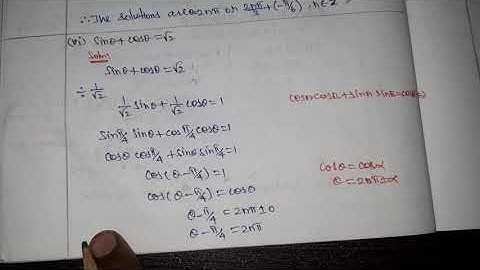 ∴ The solutions are 2nπ or 2nπ/3 + (-π/6), n∈Z
(vi) sinθ + cosθ = √2
Soln:
sinθ + cosθ = √2
÷ 1/√2
1/√2 sinθ + 1/√2 cosθ = 1
sinπ/4 sinθ + cosπ/4 cosθ = 1
cosθ cosπ/4 + sinθ sinπ/4 = 1
cos(θ - π/4) = 1
cos(θ - π/4) = cos0
θ - π/4 = 2nπ ± 0
θ - π/4 = 2nπ
cosθ = cosα
θ = 2nπ ± α